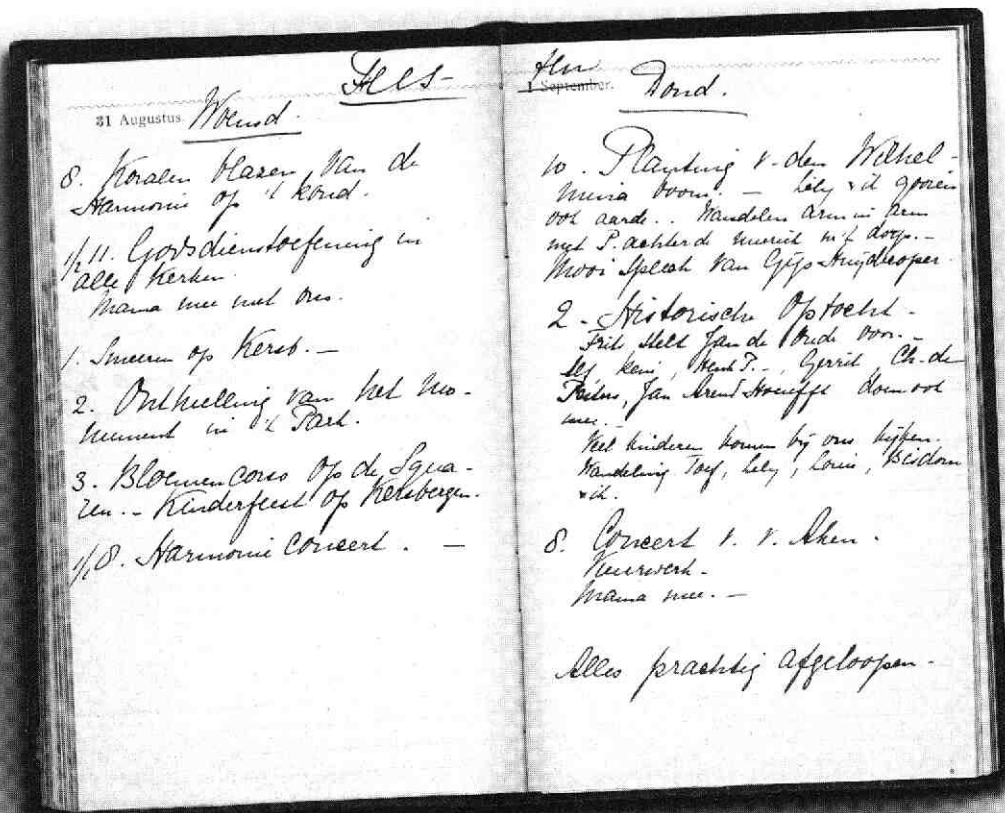 31 Augustus. Woensd.
8. Koralen blazen van de
Harmonie op 't rond.
1/2 11. Godsdienstoefening in
alle Kerken.
Mama mee met ons.
1. op Kersb. —
2. Onthulling van het Mo-
nument in 't Park.
3. Bloemencorso op de Squa-
ren. — Kinderfeest op Kersbergen.
1/2 8. Harmonie concert. —
1 September. Dond.
10. Planting v. den Wilhel-
mina boom. — Lily & ik gooien
ook aarde. . Wandelen arm in arm
met P. achter de muziek in 't dorp. —
Mooi Speech van Gijs Huydecoper.
2 - Historische Optocht -
Frits stelt Jan de Oude voor. —
Henk P. —, Gerrit, Ch. de
Jan Arend ook
mee. —
Veel kinderen komen bij ons kijken.
Wandeling Toef, Lily, Louis,
& ik.
8. Concert v. v. Aken -
Vuurwerk -
Mama mee. —
Alles prachtig afgeloopen -